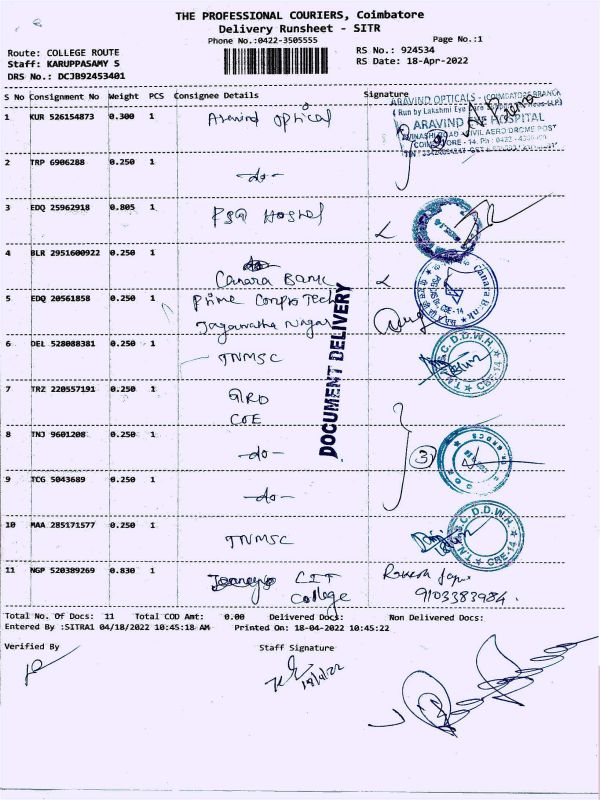 THE PROFESSIONAL COURIERS, Coimbatore
Delivery Runsheet - SITR
Phone No.:0422-3505555
Page No.:1
Route: COLLEGE ROUTE
RS No.: 924534
Staff: KARUPPASAMY S
RS Date: 18-Apr-2022
DRS No.: DCJB92453401
S No Consignment No Weight PCS Consignee Details Signature
1 KUR 526154873 0.300 1 Aravind Optical
ARAVIND OPTICALS - (COIMBATORE BRANCH
ARAVIND EYE HOSPITAL
AVINASHI ROAD - CIVIL AERO DROME POST
2 TRP 6906288 0.250 1 -do-
3 EDQ 25962918 0.805 1 PSG Hostel
4 BLR 2951600922 0.250 1
Canara Bank
5 EDQ 20561858 0.250 1 Prime Compro Tech
Jaganatha Nagar
DOCUMENT DELIVERY
6 DEL 528088381 0.250 1 TNMSC
C.D.D.W.H.
CBE-14
7 TRZ 220557191 0.250 1 GRD
COE
8 TNJ 9601208 0.250 1 -do-
3
9 TCG 5043689 0.250 1 -do-
10 MAA 285171577 0.250 1 TNMSC
T.N.M.S.C. D.D.W.H.
CBE-14
11 NGP 520389269 0.830 1 CIT
College
9103383984.
Total No. Of Docs: 11 Total COD Amt: 0.00 Delivered Docs: Non Delivered Docs:
Entered By :SITRA1 04/18/2022 10:45:18 AM Printed On: 18-04-2022 10:45:22
Verified By
Staff Signature